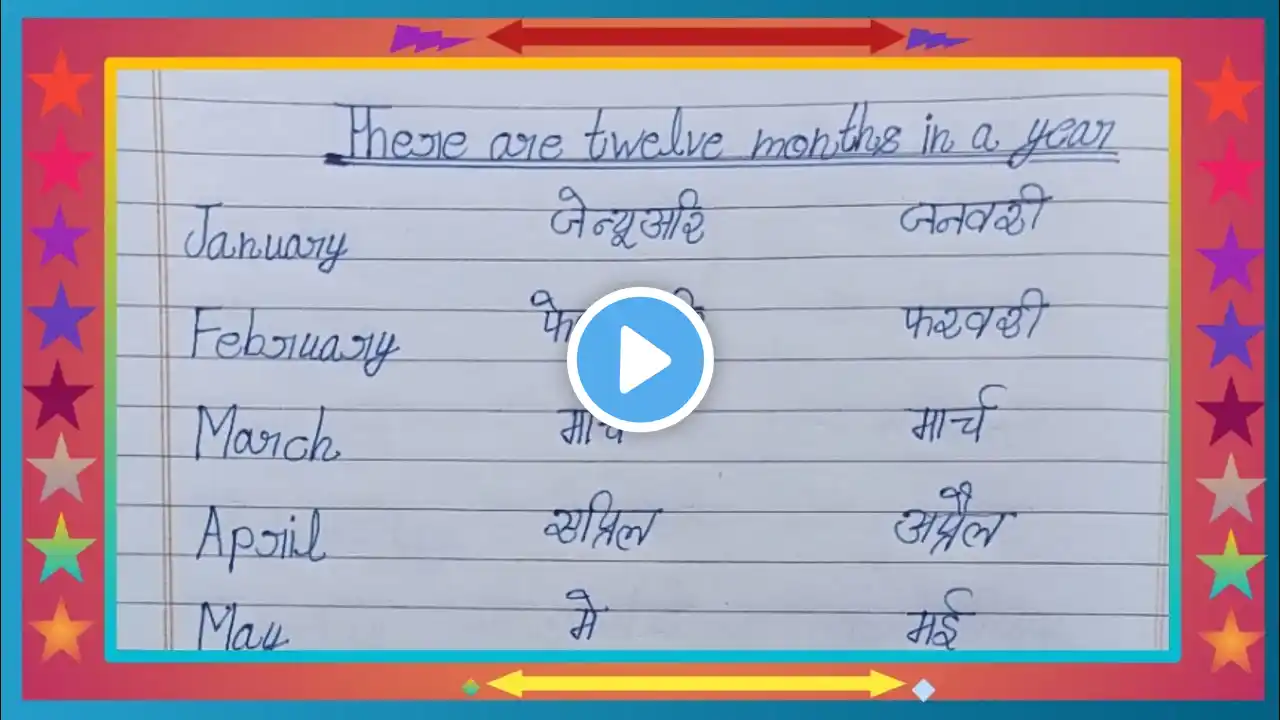 There are twelve months in a year
January जेन्यूअरि जनवरी
February फरवरी
March मार्च मार्च
April एप्रिल अप्रैल
May मे मई